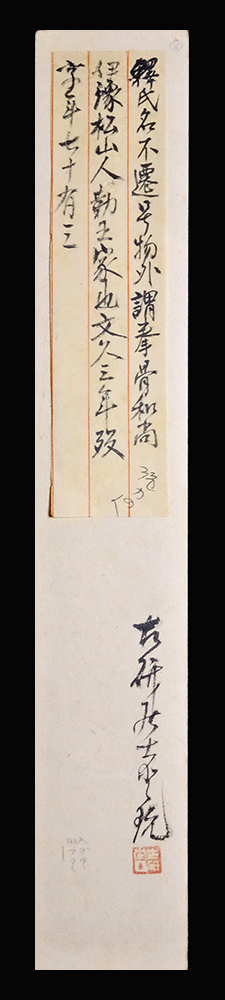 釋氏名不遷号物外謂拳骨和尚
伊豫松山人勤王家也文久三年歿
享年七十有三
古研居士